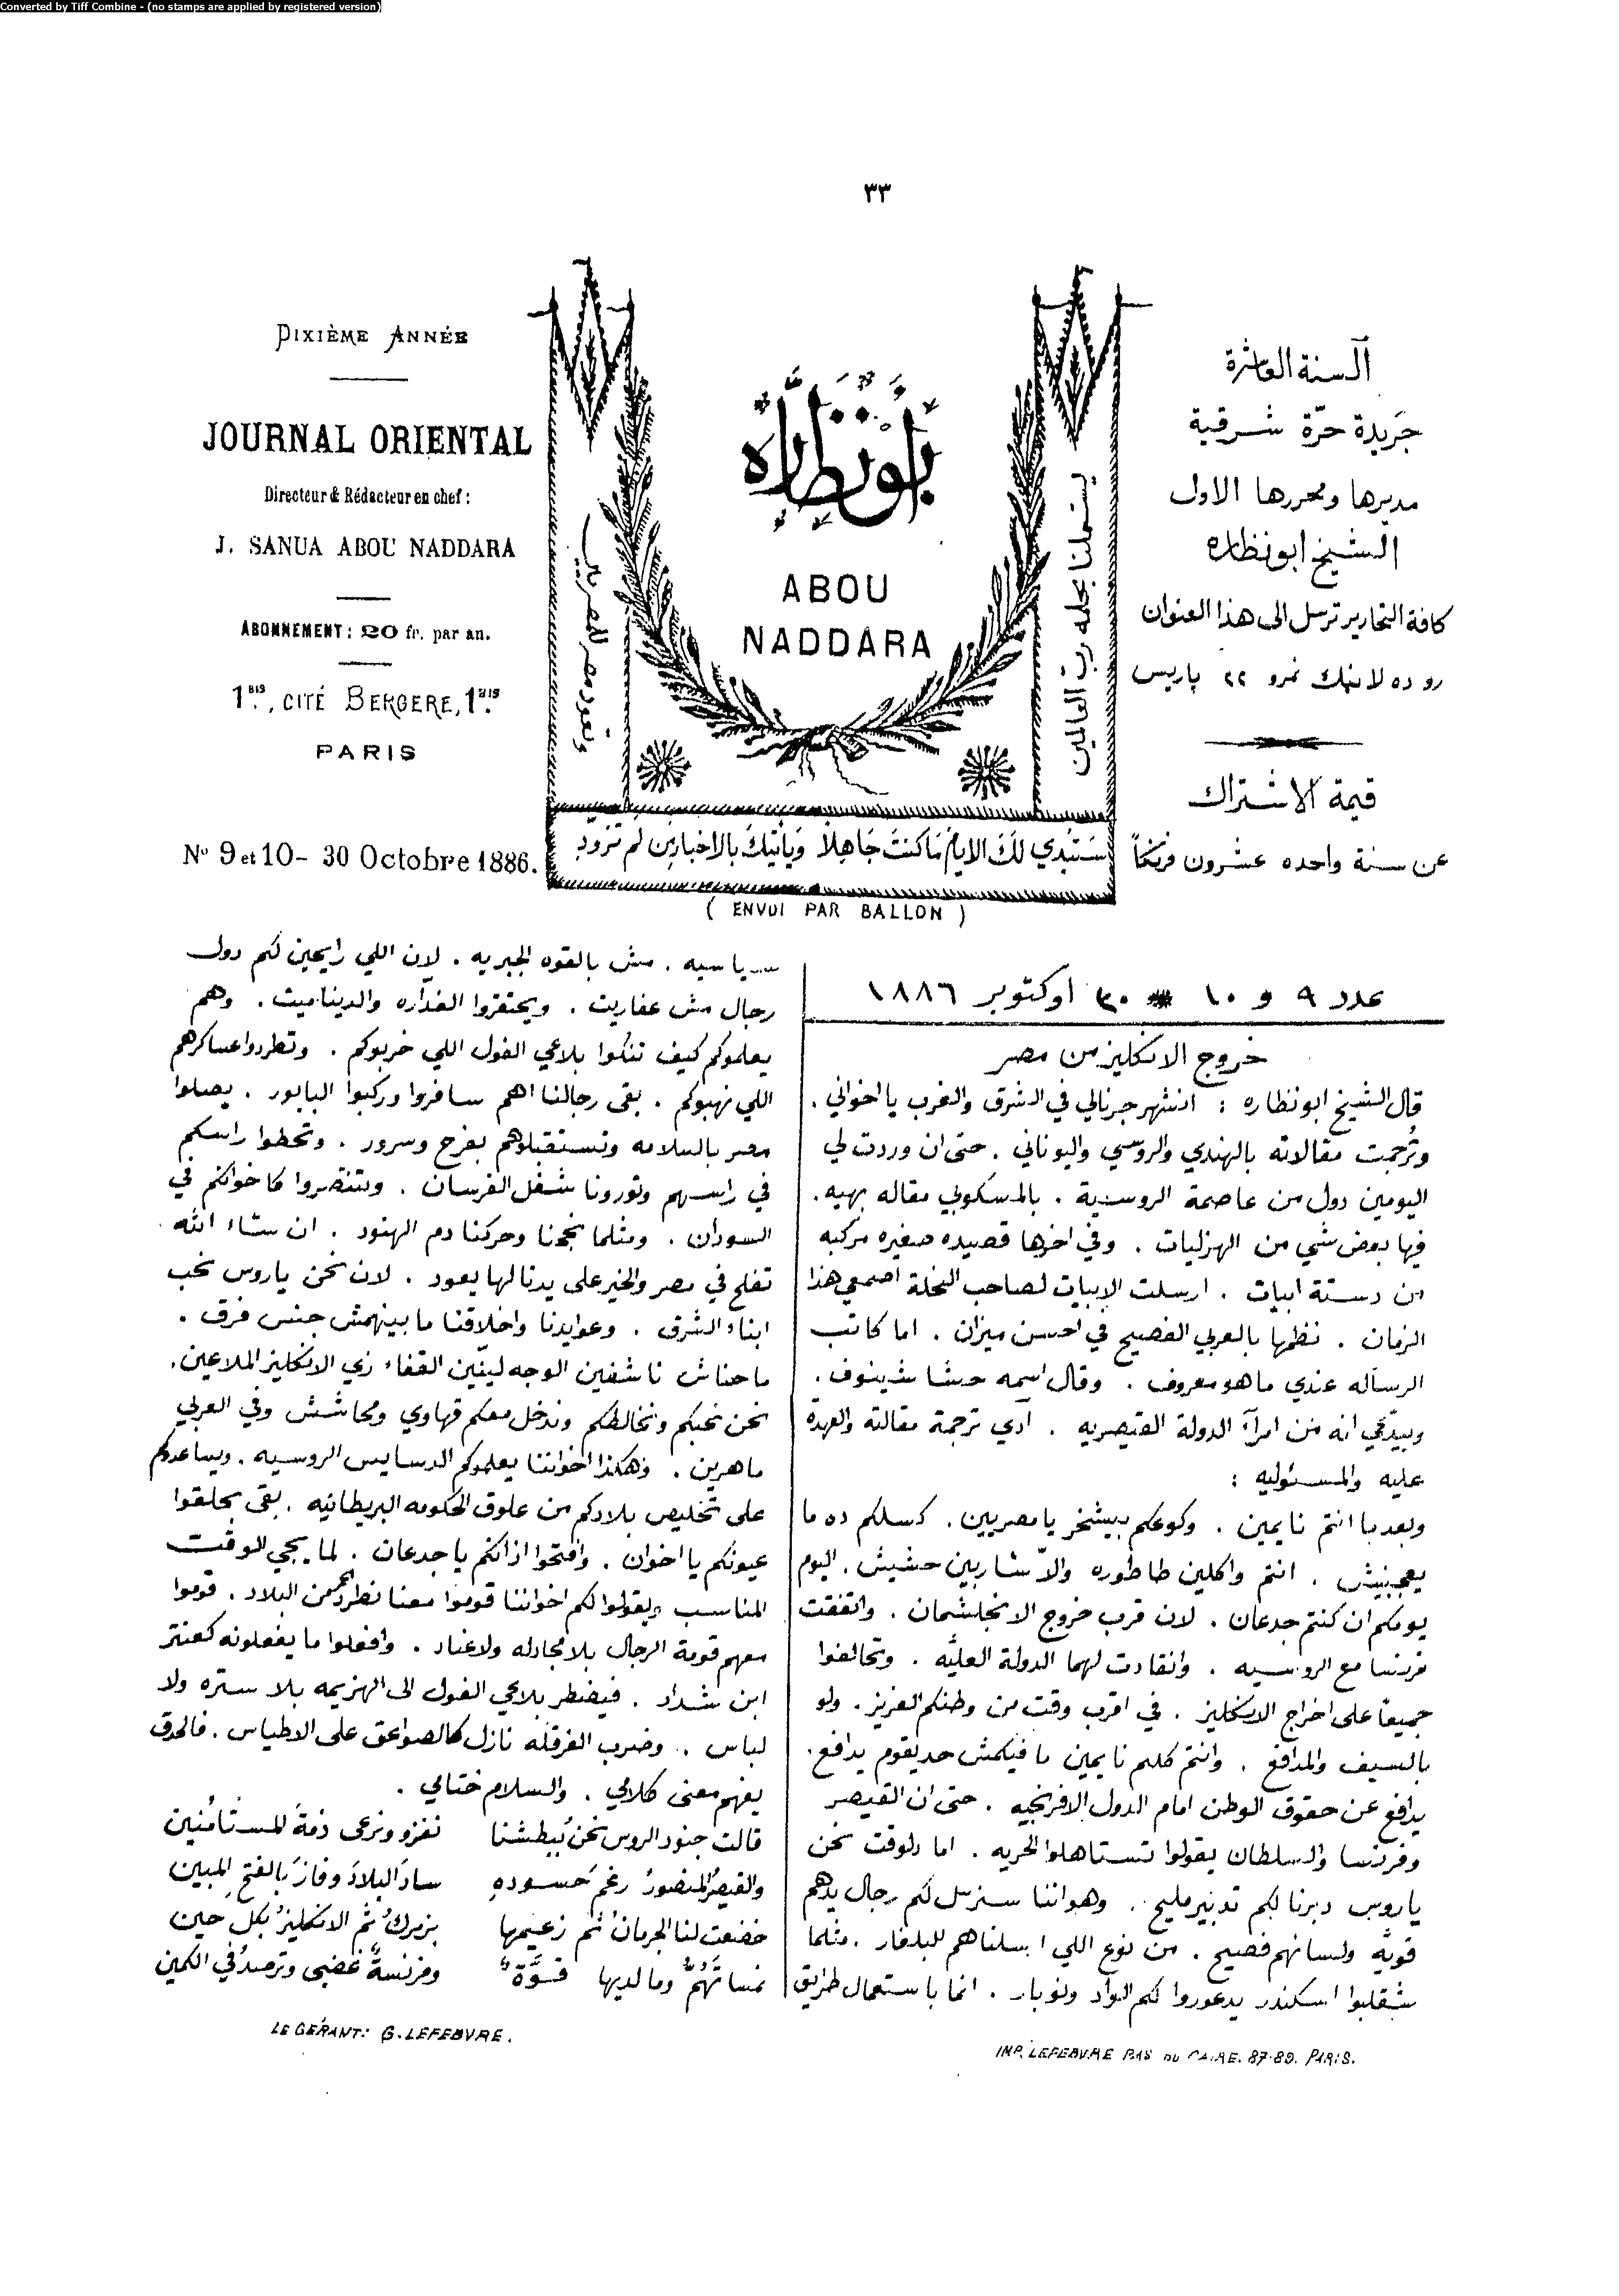 Converted by Tiff Combine - (no stamps are applied by registered version)
٣٣
DIXIÈME ANNÉE
JOURNAL ORIENTAL
Directeur & Rédacteur en chef:
J. SANUA ABOU NADDARA
ABONNEMENT: 20 fr. par an.
1.bis, CITÉ BERGERE, 1.bis
PARIS
Nº 9 et 10 - 30 Octobre 1886.
ابو نظارة
ABOU
NADDARA
يستملنا بجله رب العالمين
وتعود مصر للمصريين
سَتُبدي لَكَ الايامُ مَا كنتَ جَاهِلاً وَيَأتيكَ بالاخبارِ مَن لم تزودِ
( ENVOI PAR BALLON )
السنة العاشرة
جَريدة حرّة شرقية
مديرها ومحررها الاول
الشيخ ابو نظاره
كافة التحارير ترسل الى هذا العنوان
رو ده لانپك نمرو ٢٢ پاريس
قيمة الاشتراك
عن سنة واحده عشرون فرنكاً
عدد ٩ و ١٠ * ٣٠ اوكتوبر ١٨٨٦
خروج الانكليز من مصر
قال الشيخ ابو نظاره : انشهر جرنالي في الشرق والغرب يا اخواني .
وتُرجمت مقالاته بالهندي والروسي واليوناني . حتى ان وردت لي
اليومين دول من عاصمة الروسية . بالمسكوبي مقاله بهيه .
فيها بعض شي من الهزليات . وفي اخرها قصيده صغيره مركبه
من دستة ابيات . ارسلت الابيات لصاحب النحلة اصمعي هذا
الزمان . نظمها بالعربي الفصيح في احسن ميزان . اما كاتب
الرساله عندي ما هو معروف . وقال اسمه حشاشينوف .
وبيدّعي انه من امرآء الدولة القيصريه . آدي ترجمة مقالته والعهدة
عليه والمسئوليه :
وبعد با انتم نايمين . وكوعكم بيشخر يا مصريين . كسلكم ده ما
يعجبنيش . انتم واكلين طاطوره والاّ شاربين حشيش . اليوم
يومكم ان كنتم جدعان . لان قرب خروج الانجليشمان . واتفقت
فرنسا مع الروسيه . وانقادت لهما الدولة العليَّه . وتحالفوا
جميعاً على اخراج الانكليز . في اقرب وقت من وطنكم العزيز . ولو
بالسيف والمدافع . وانتم كلكم نايمين ما فيكمش حد يقوم يدافع .
يدافع عن حقوق الوطن امام الدول الافرنجيه . حتى ان القيصر
وفرنسا والسلطان يقولوا تستاهلوا الحريه . اما دلوقت نحن
ياروس دبرنا لكم تدبير مليح . وهو اننا سنرسل لكم رجال يدهم
قويَّه ولسانهم فصيح . من نوع اللي ارسلناهم للبلغار . مثلما
شقلبوا اسكندر يدعوروا لكم الواد ونوبار . انما باستعمال طرايق
سياسيه . مش بالقوه الجبريه . لان اللي رايحين لكم دول
رجال مش عفاريت . ويحتقروا الغدّاره والديناميت . وهم
يعلموكم كيف تنكوا بلاعي الفول اللي خربوكم . وتطردوا عساكرهم
اللي نهبوكم . بقى رجالنا اهم سافروا وركبوا البابور . يصلوا
مصر بالسلامه وتستقبلوهم بفرح وسرور . وتحطوا راسكم
في راسهم وتورونا شغل الفرسان . وتنتصروا كاخوانكم في
السودان . ومثلما نجحنا وحركنا دم الهنود . ان شاء الله
تفلح في مصر والخير على يدنا لها يعود . لان نحن ياروس نحب
ابناء الشرق . وعوايدنا واخلاقنا ما بينهمش جنس فرق .
ما حناش ناشفين الوجه لينّين القفاء زي الانكليز الملاعين .
نحن نحبكم ونخالطكم وندخل معكم قهاوي ومحاشش وفي العربي
ماهرين . وهكذا اخواننا يعلموكم الدسايس الروسيه . ويساعدوكم
على تخليص بلادكم من علوق الحكومه البريطانيه . بقى بحلقوا
عيونكم يا اخوان . وافتحوا اذانكم يا جدعان . لما يجي الوقت
المناسب ويقولوا لكم اخواننا قوموا معنا نطردهم من البلاد . قوموا
معهم قومة الرجال بلا مجادله ولا عناد . وافعلوا ما يفعلونه كعنتر
ابن شداد . فيضطر بلاعي الفول الى الهزيمه بلا ستره ولا
لباس . وضرب الفرقله نازل كالصواعق على الاطياس . فالحدق
يفهم معنى كلامي . والسلام ختامي .
قالت جنود الروس نحن ببطشنا نغزو ونرعى ذمةَ للمستأمنين
والقيصرُ المنصورُ رغم حسودهِ سادَ البلادَ وفازَ بالفتحِ المبين
خضعت لنا الجرمانُ ثم زعيمها بزمركُ ثم الانكليزُ بكل حين
نمساتهُمُ وما لديها قوَّةٌ وفرنسةٌ غضبى وترصدُ في الكمين
LE GÉRANT: G. LEFEBVRE.
IMP. LEFEBVRE PAS DU CAIRE. 87-89. PARIS.